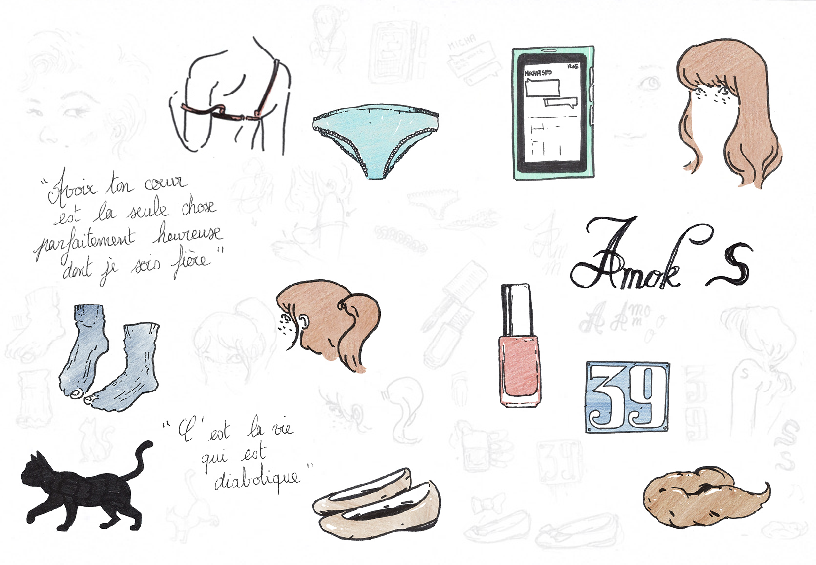 "Avoir ton cœur
est la seule chose
parfaitement heureuse
dont je sois fière"
Amok S
39
"C'est la vie
qui est
diabolique"